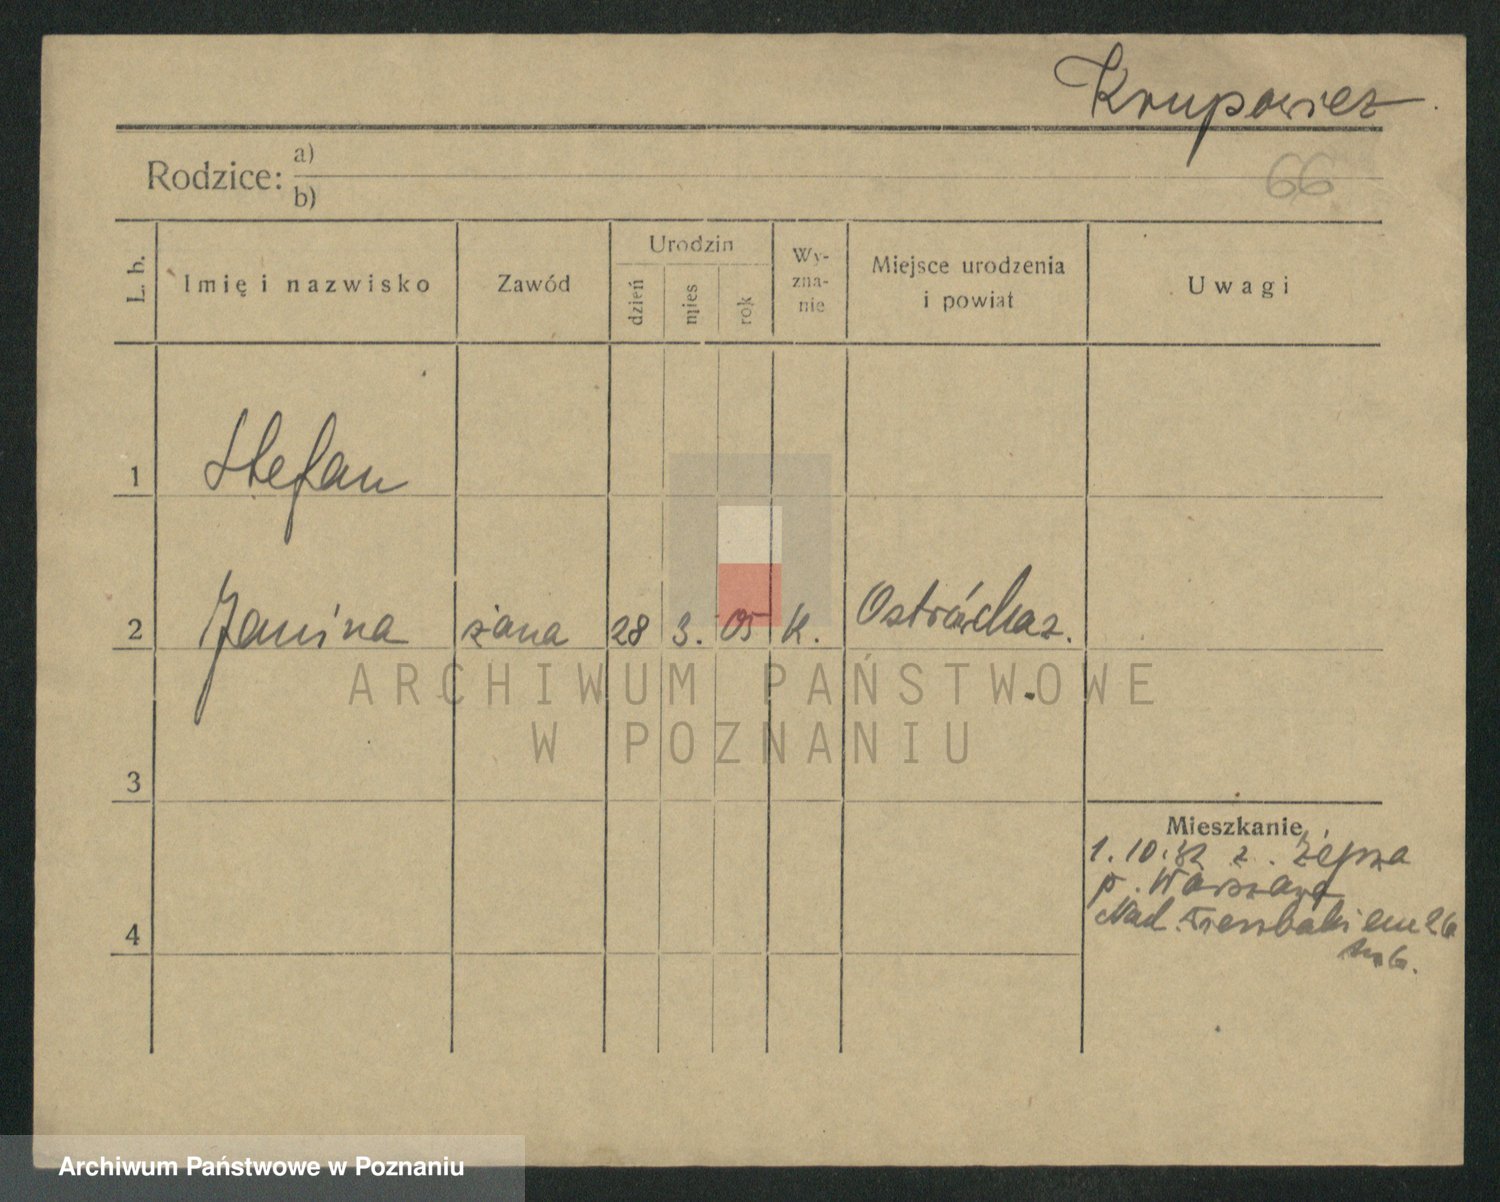 Krupowicz.
66
Rodzice: a)
b)
L. b. Imię i nazwisko Zawód Urodzin dzień mies rok Wy-zna-nie Miejsce urodzenia i powiat Uwagi
1 Stefan
2 Janina żona 28 3. 05 K.
3
Mieszkanie
1.10.32 z.
p. Warszawa
4
Nad 26
m 6.
ARCHIWUM PAŃSTWOWE
W POZNANIU
Archiwum Państwowe w Poznaniu